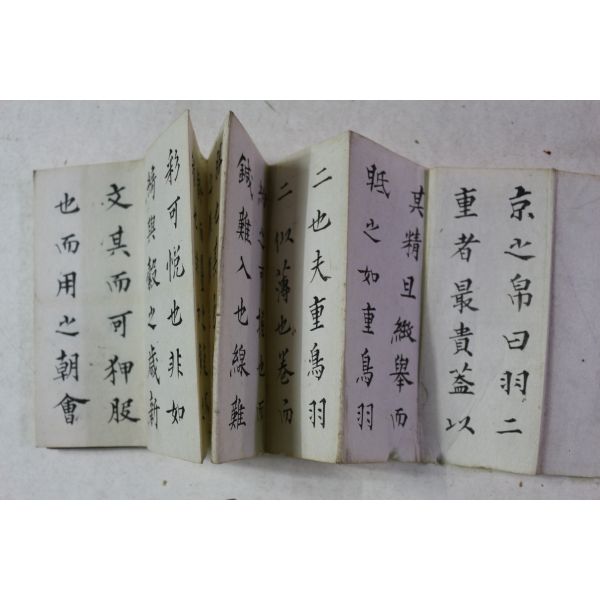 京之帛曰羽二
重者最貴蓋以
其精且緻舉而
眡之如重鳥羽
二也夫重鳥羽
二似薄也卷而
之可 也而
鍼難入也線難
彩可悅也非如
綺與縠之歲新
文其而可狎服
也而用之朝會